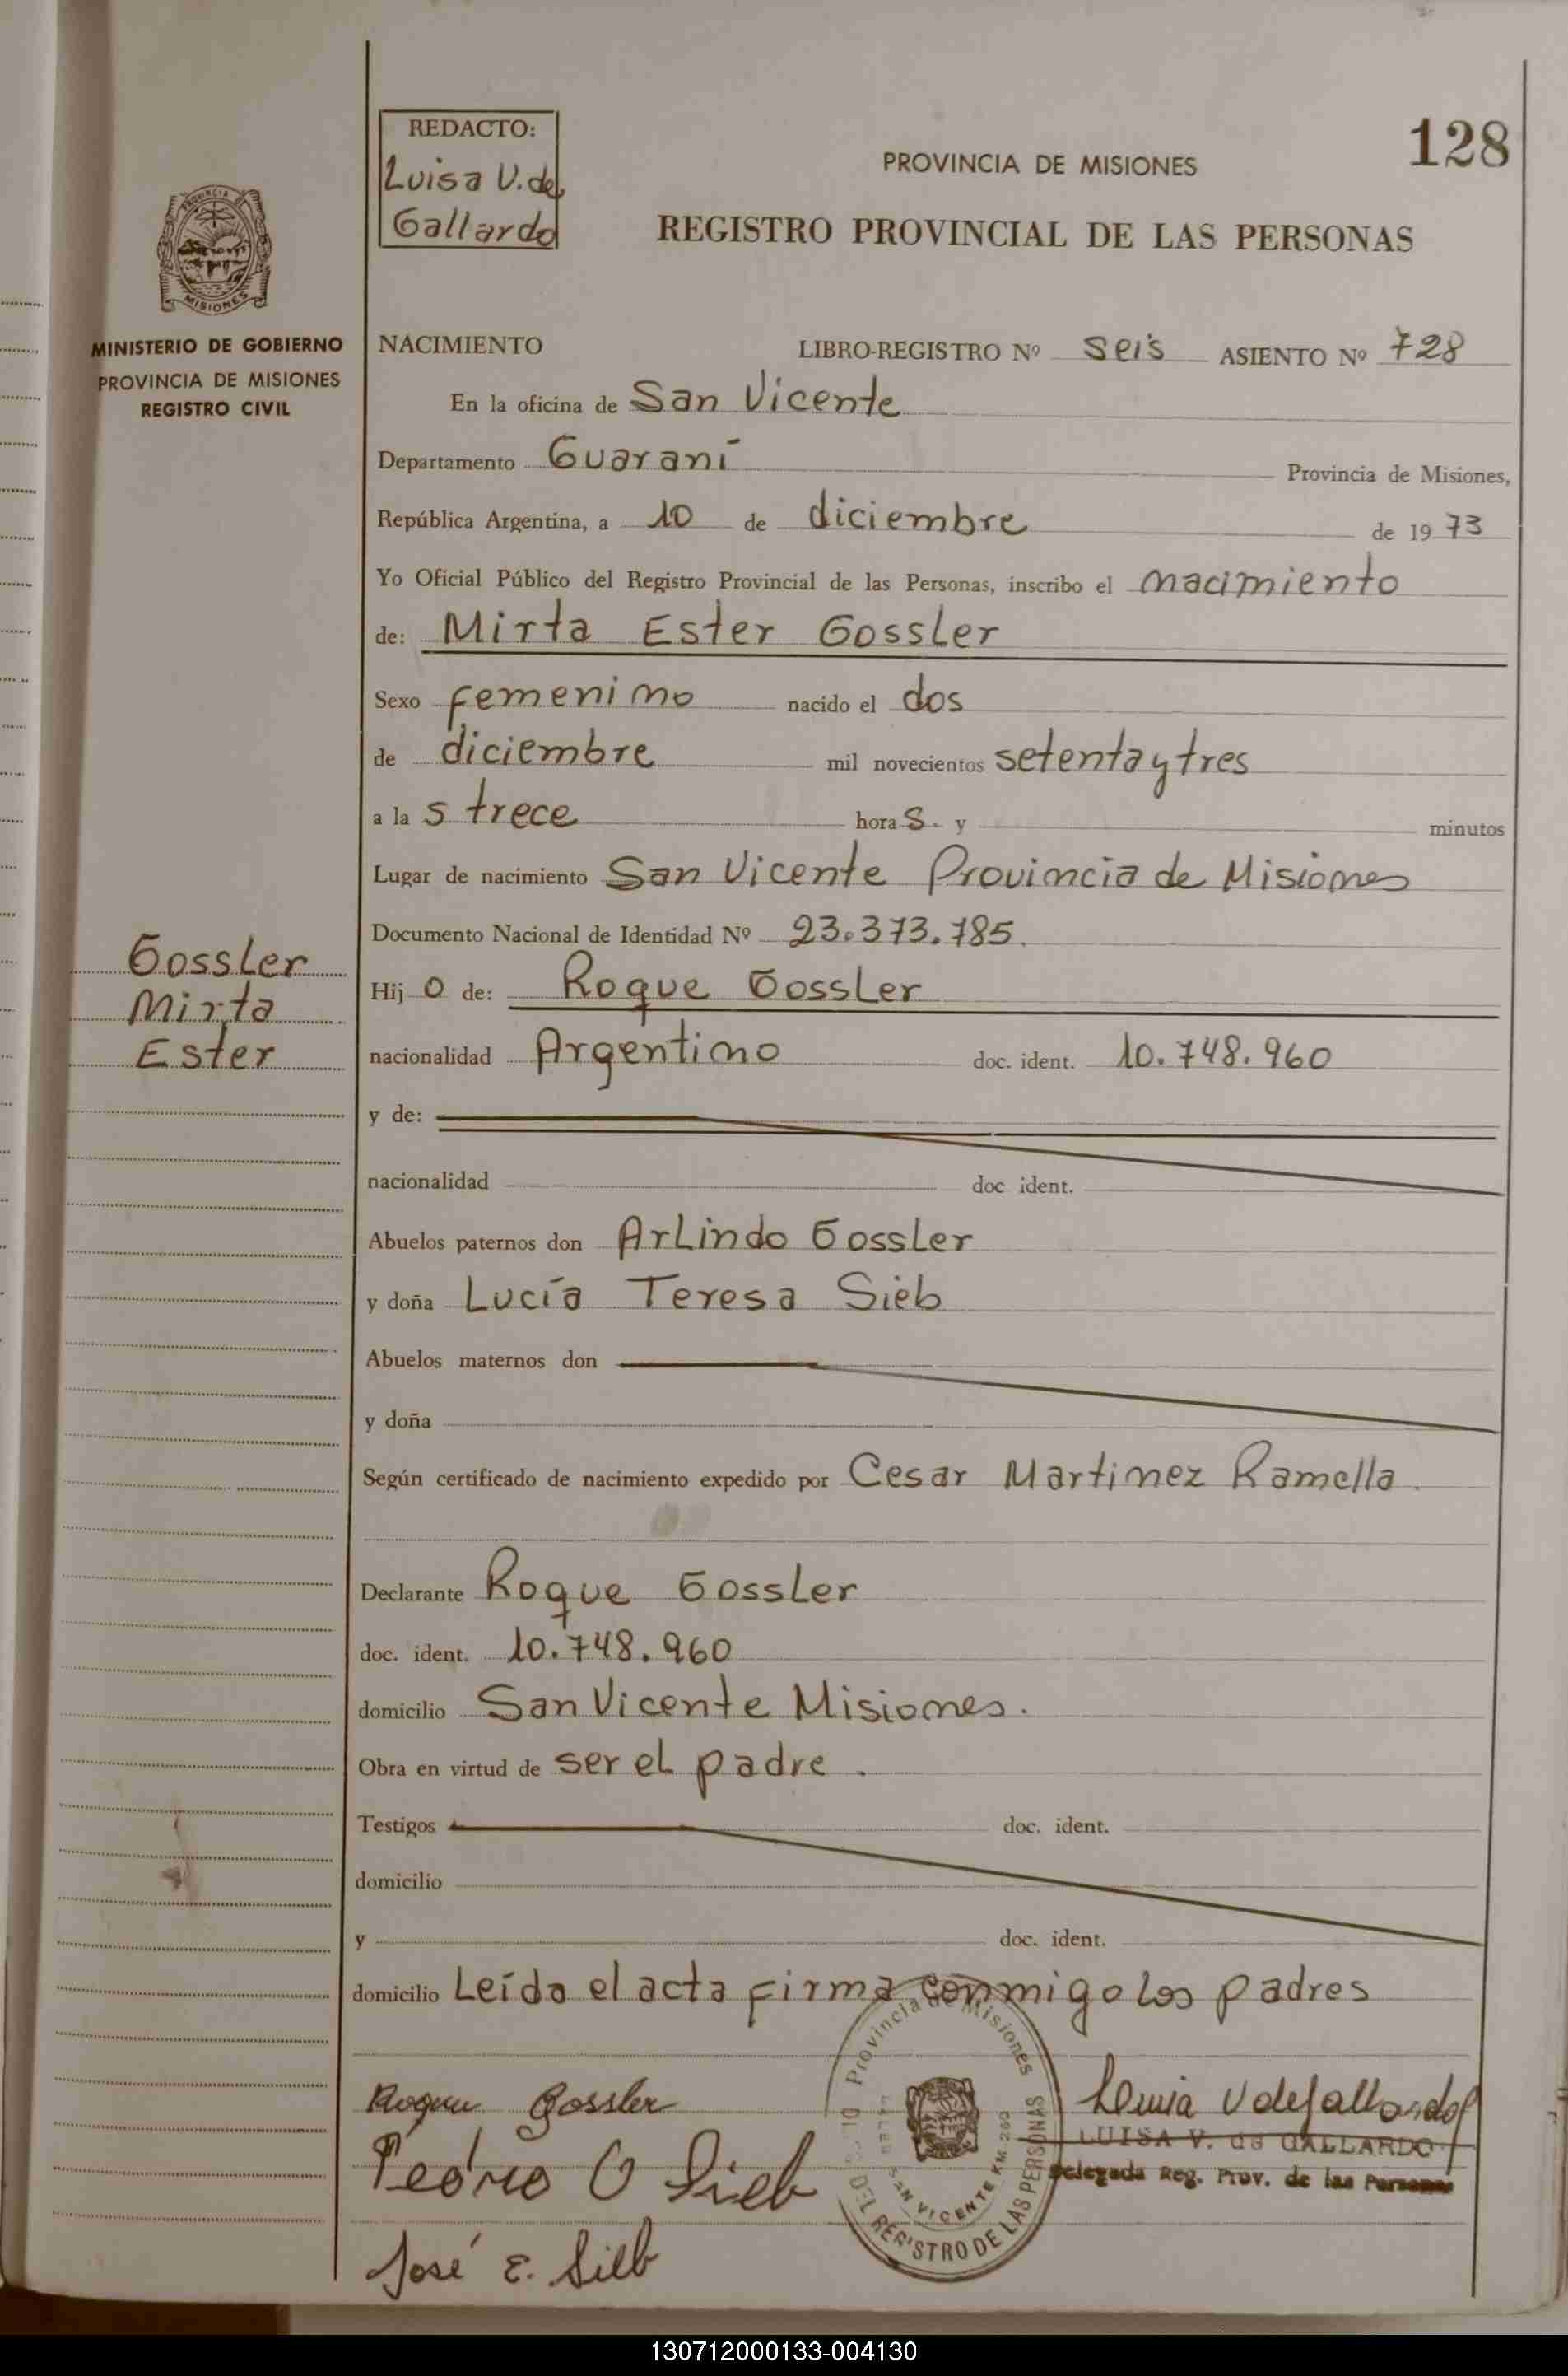 128
REDACTO:
Luisa V. de
Gallardo
PROVINCIA DE MISIONES
REGISTRO PROVINCIAL DE LAS PERSONAS
MISIONES
MINISTERIO DE GOBIERNO
PROVINCIA DE MISIONES
REGISTRO CIVIL
NACIMIENTO LIBRO-REGISTRO Nº seis ASIENTO Nº 728
En la oficina de San Vicente
Departamento Guaraní Provincia de Misiones,
República Argentina, a 10 de diciembre de 1973
Yo Oficial Público del Registro Provincial de las Personas, inscribo el nacimiento
de: Mirta Ester Gossler
Sexo femenino nacido el dos
de diciembre mil novecientos setenta y tres
a la s trece hora s. y minutos
Lugar de nacimiento San Vicente Provincia de Misiones
Documento Nacional de Identidad Nº 23.373.785.
Gossler
Mirta
Ester
Hij o de: Roque Gossler
nacionalidad Argentino doc. ident. 10.748.960
y de:
nacionalidad doc ident.
Abuelos paternos don Arlindo Gossler
y doña Lucía Teresa Sieb
Abuelos maternos don
y doña
Según certificado de nacimiento expedido por Cesar Martinez Ramella.
Declarante Roque Gossler
doc. ident. 10.748.960
domicilio San Vicente Misiones.
Obra en virtud de ser el padre.
Testigos doc. ident.
domicilio
y doc. ident.
domicilio Leído el acta firma conmigo los padres
Provincia de Misiones
DEL REGISTRO DE LAS PERSONAS
SAN VICENTE KM. 260
Roque Gossler
Luisa V de Gallardo
LUISA V. de GALLARDO
Delegada Reg. Prov. de las Personas
Sieb
José E. Sieb
130712000133-004130